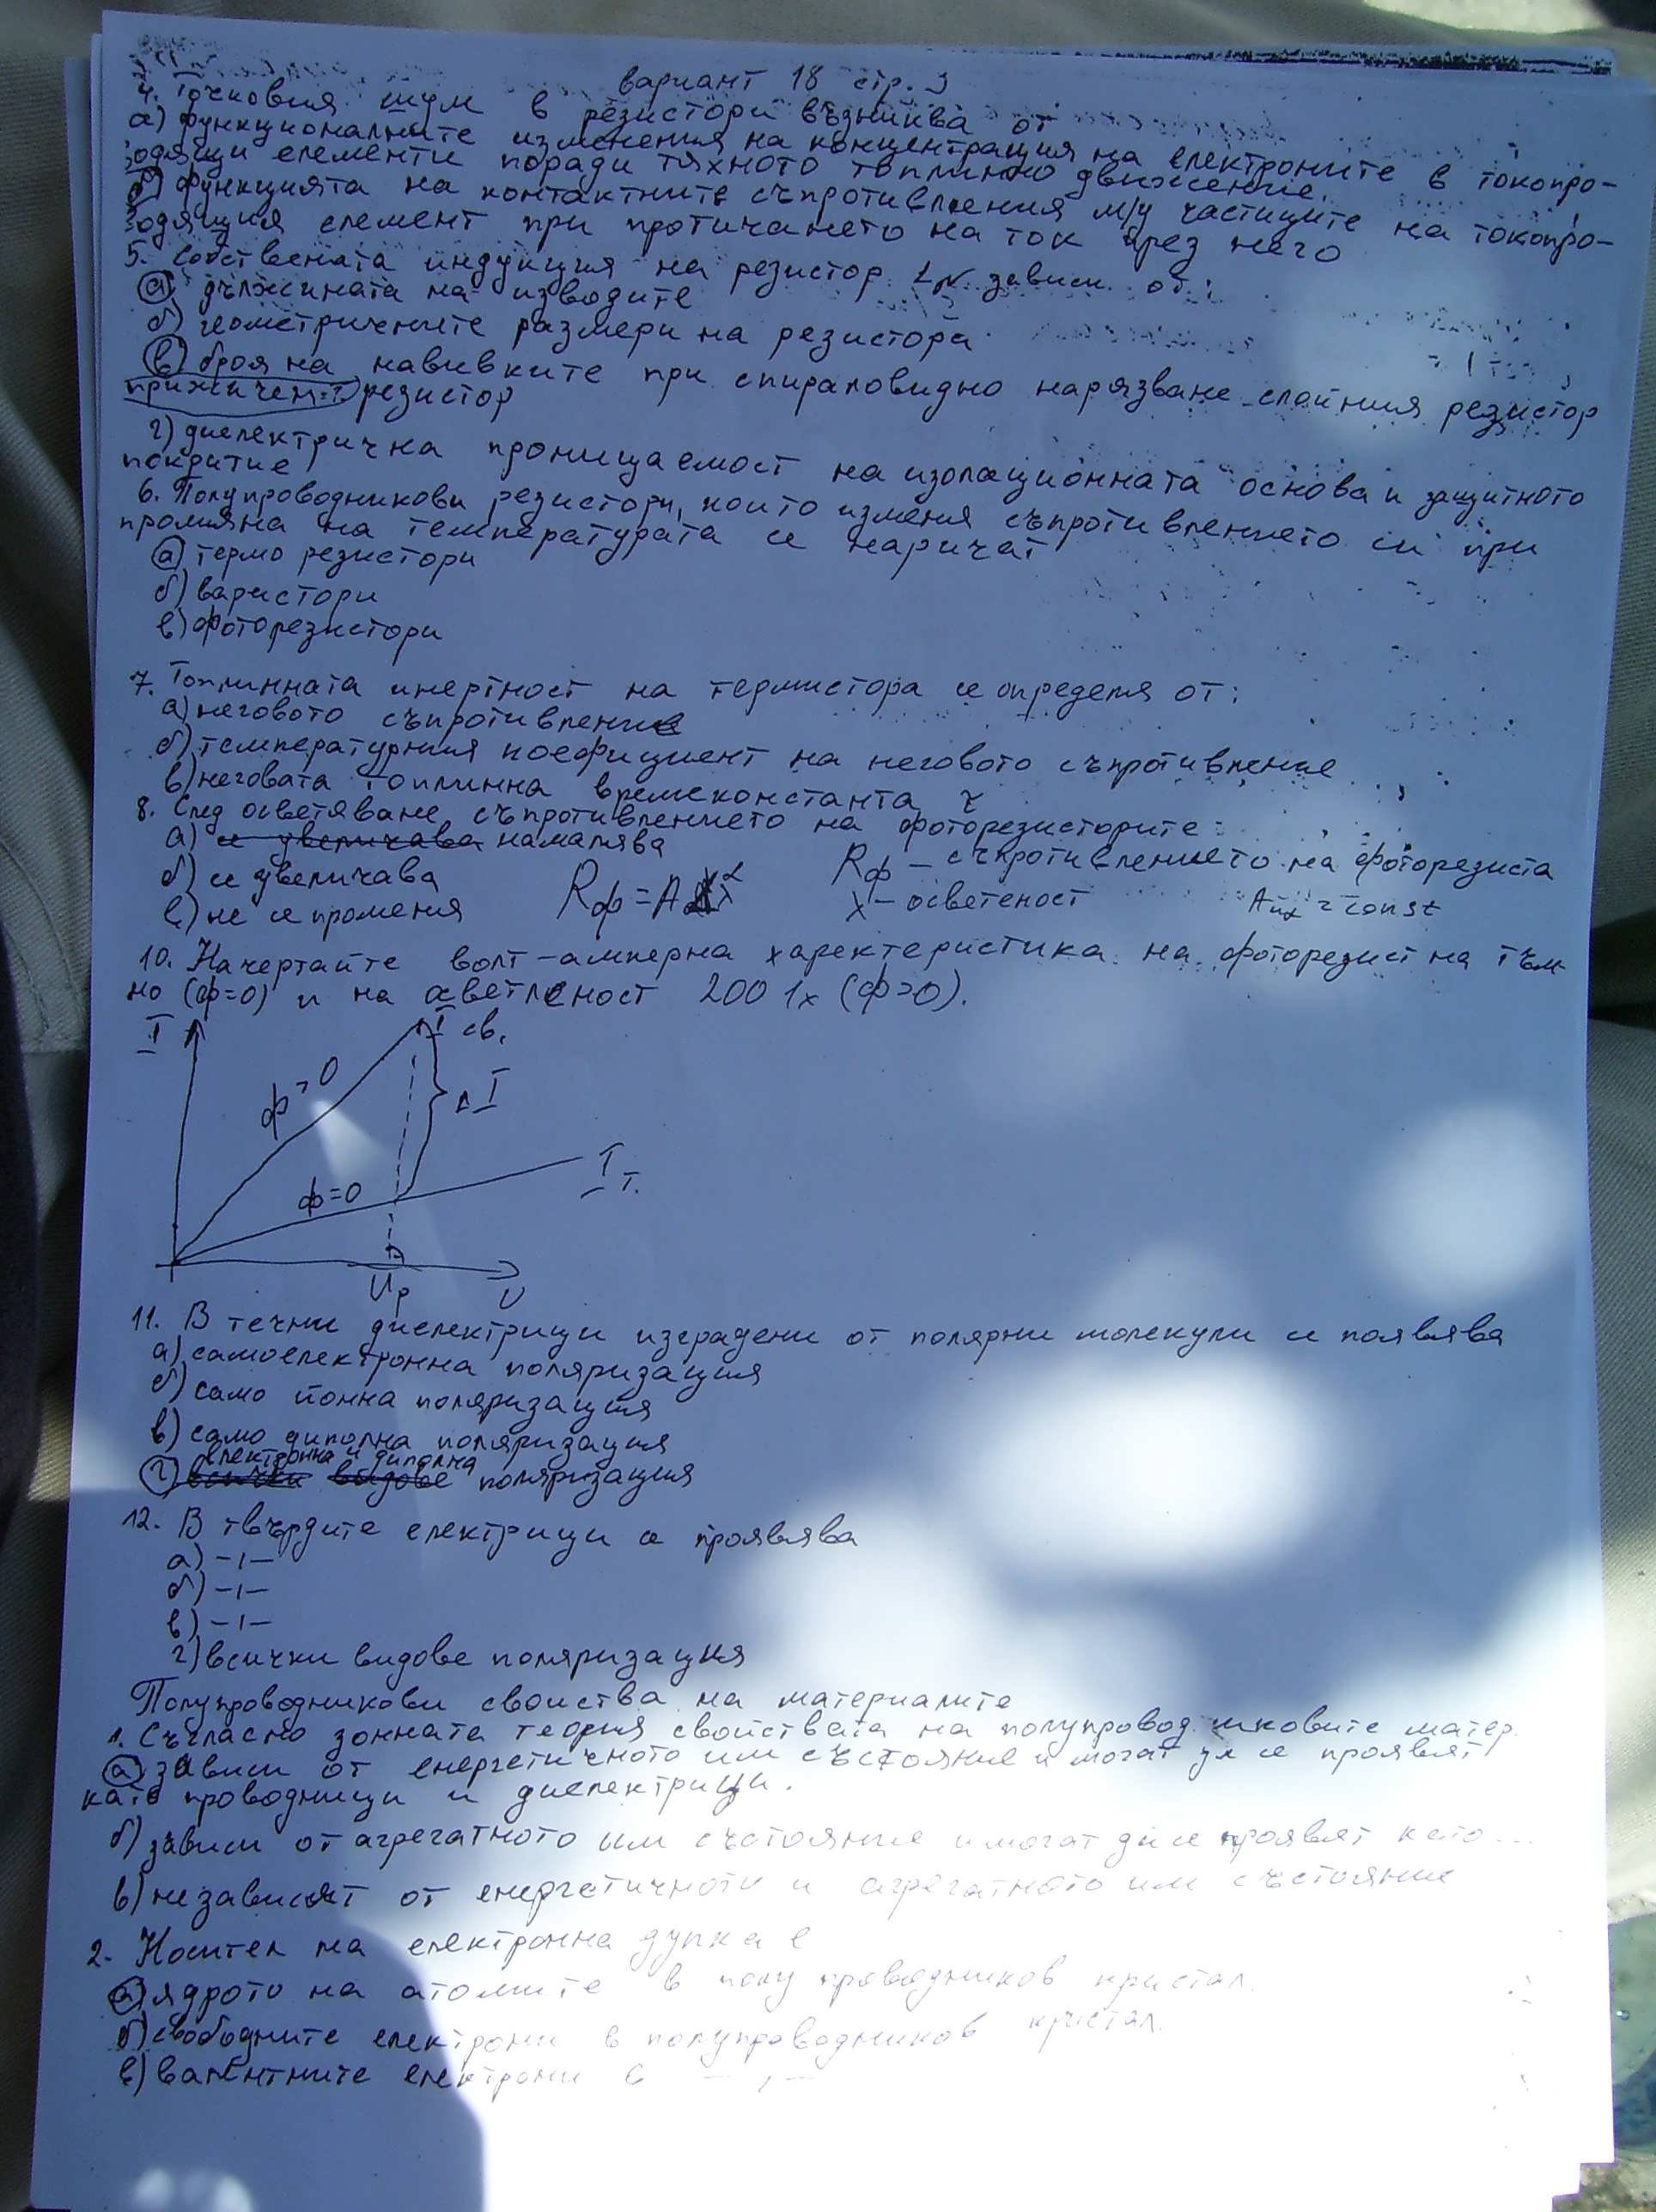 вариант 18 стр. 3
4. Точковия шум в резистори възниква от
а) функционалните изменения на концентрация на електроните в токопро-
водящи елементи поради тяхното топлинно движение.
б) функцията на контактните съпротивления м/у частиците на токопро-
водящия елемент при протичането на ток през него
5. Собствената индукция на резистор зависи от:
а) дължината на изводите
б) геометричните размери на резистора
в) броя на навивките при спираловидно нарязване слойния резистор
резистор
г) диелектрична проницаемост на изолационната основа и защитното
покритие
6. Полупроводникови резистори, които изменя съпротивлението си при
промяна на температурата се наричат
а) термо резистори
б) варистори
в) фоторезистори
7. Топлинната инертност на термистора се определя от:
а) неговото съпротивление
б) температурния коефициент на неговото съпротивление
в) неговата топлинна времеконстанта τ
8. След осветяване съпротивлението на фоторезисторите
а) се увеличава намалява
б) се увеличава
в) не се променя
Rф = A x^α
Rф – съпротивлението на фоторезиста
x – осветеност
A и α = const
10. Начертайте волт-амперна характеристика на фоторезист на тъм-
но (ф=0) и на осветленост 200 lx (ф>0).
I
I св.
ф>0
ΔI
I т.
ф=0
Uр
U
11. В течни диелектрици изградени от полярни молекули се появява
а) самоелектронна поляризация
б) само йонна поляризация
в) само диполна поляризация
електронна и диполна
г) всички видове поляризация
12. В твърдите електрици се проявява
а) –ı–
б) –ı–
в) –ı–
г) всички видове поляризация
Полупроводникови свойства на материалите
1. Съгласно зонната теория свойствата на полупроводниковите матер.
а) зависи от енергетичното им състояние и могат да се проявят
като проводници и диелектрици.
б) зависи от агрегатното им състояние и могат да се проявят като...
в) независят от енергетичното и агрегатното им състояние
2. Носител на електронна дупка е
а) ядрото на атомите в полупроводников кристал.
б) свободните електрони в полупроводников кристал.
в) валентните електрони в –ı–